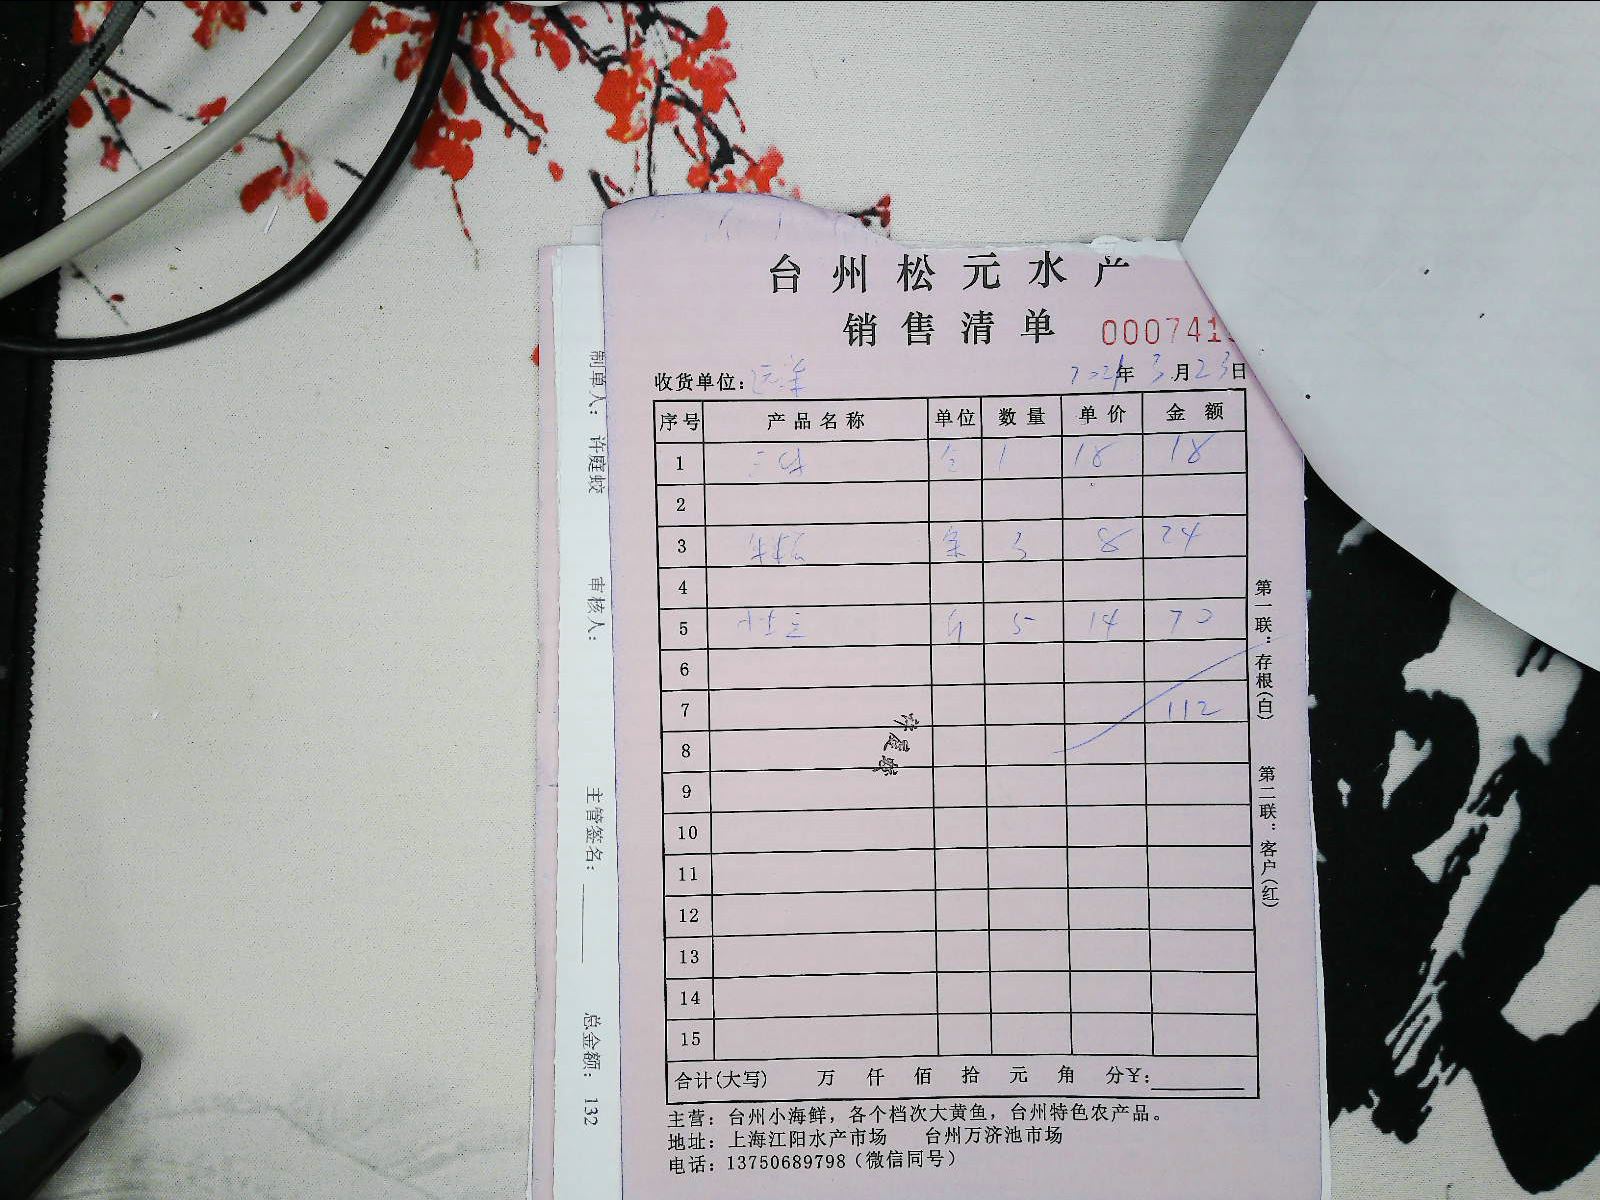 台州松元水产
销售清单 000741
收货单位: 远洋 2021年3月23日
序号 产品名称 单位 数量 单价 金额
1 1 18 18
2
3 3 8 24
4
5 斤 5 14 70
6
7 112
8
9
10
11
12
13
14
15
合计(大写) 万 仟 佰 拾 元 角 分¥:
主营：台州小海鲜，各个档次大黄鱼，台州特色农产品。
地址：上海江阳水产市场 台州万济池市场
电话：13750689798（微信同号）
第一联：存根(白) 第二联：客户(红)
许庭蛟
制单人： 许庭蛟 审核人： 主管签名： 总金额：132